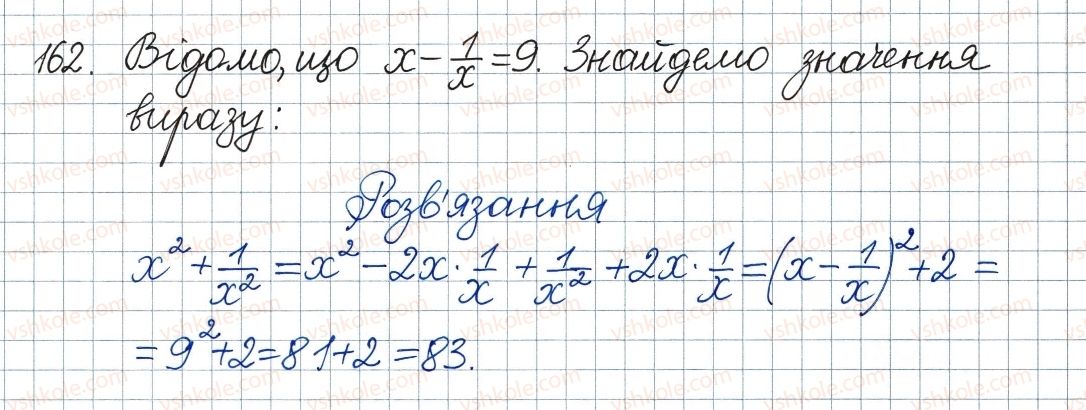 162. Відомо, що x - 1/x = 9. Знайдемо значення
виразу:
Розв'язання
x² + 1/x² = x² - 2x · 1/x + 1/x² + 2x · 1/x = (x - 1/x)² + 2 =
= 9² + 2 = 81 + 2 = 83.